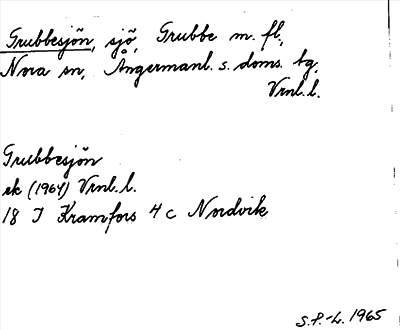 Grubbesjön, sjö, Grubbe m. fl.,
Nora sn, Ångermanl. s. doms. tg,
Vrnl. l.
Grubbesjön
ek (1964) Vrnl. l.
18 I Kramfors 4 c Nordvik
S.P.-L. 1965